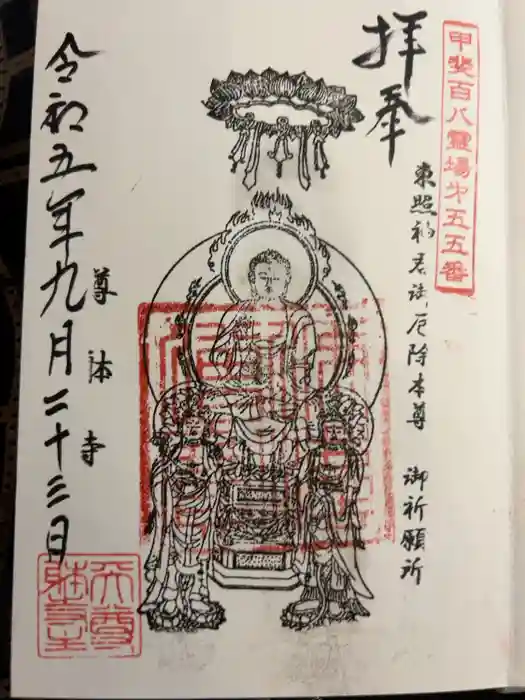 甲斐百八靈場第五五番
奉拝
東照神君御厄除本尊 御祈願所
尊躰寺
令和五年九月二十三日